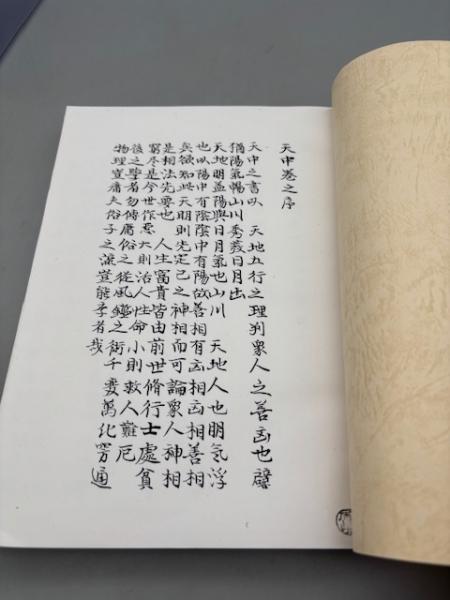 天中卷之序
天中之書以　天地五行之理判衆人之善凶也譬
猶陽氣暢山川秀義日月出
天地明益陽與日月氣也山川　天地人也明気浮
也以陽中有陰陰中有陽故善相有凶相凶相善相
矣欲知此天明則先定己之神相而可論衆人神相
是相法先要也　人生富貴皆由前世脩行士處貧
窮尽是今世作悪大則治人性命小則救人難厄
後之學者勿傳庸俗之從風鑑之術千變萬化窮通
物理豈庸夫俗子之淚豈能子者哉